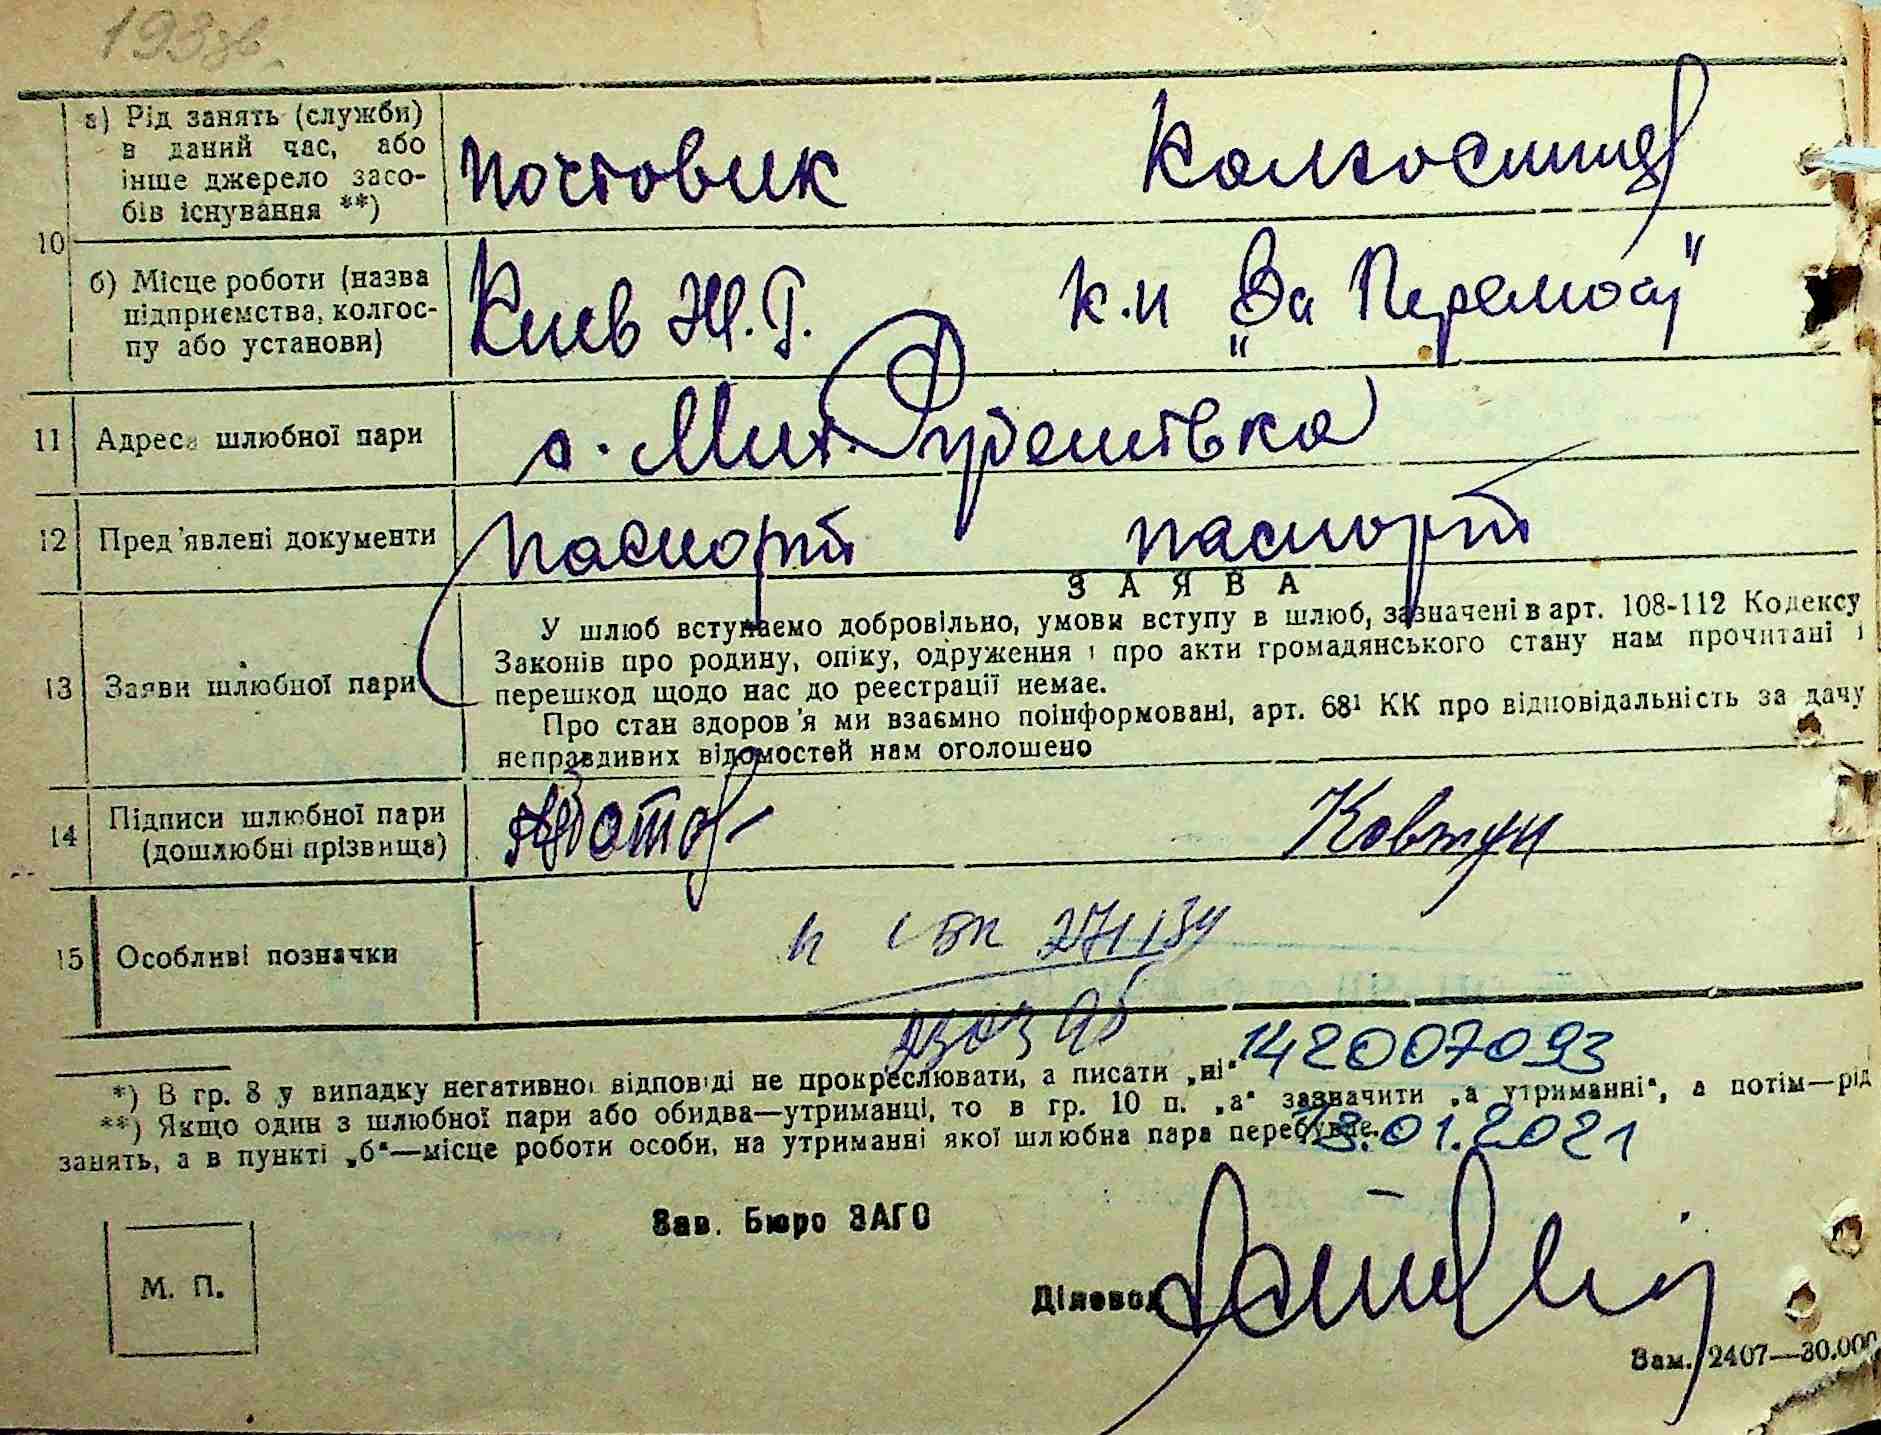 а) Рід занять (служби)
в даний час, або
інше джерело засо-
бів існування **)
почтовик Колгоспниця
10
б) Місце роботи (назва
підприємства, колгос-
пу або установи)
Киев Ж.Г. к.п „За Перемогу"
11 Адреса шлюбної пари
с. Мик.
12 Пред'явлені документи
паспорт паспорт
ЗАЯВА
13 Заяви шлюбної пари
У шлюб вступаємо добровільно, умови вступу в шлюб, зазначені в арт. 108-112 Кодексу
Законів про родину, опіку, одруження і про акти громадянського стану нам прочитані і
перешкод щодо нас до реєстрації немає.
Про стан здоров'я ми взаємно поінформовані, арт. 68¹ КК про відповідальність за дачу
неправдивих відомостей нам оголошено
14 Підписи шлюбної пари
(дошлюбні прізвища)
Ковтун
15 Особливі позначки
142007093
*) В гр. 8 у випадку негативної відповіді не прокреслювати, а писати „ні"
**) Якщо один з шлюбної пари або обидва—утриманці, то в гр. 10 п. „а" зазначити „а утриманні", а потім—рід
занять, а в пункті „б"—місце роботи особи, на утриманні якої шлюбна пара перебуває.
13.01.2021
Зав. Бюро ЗАГС
М. П.
Діловод
Зам. 2407—30.000